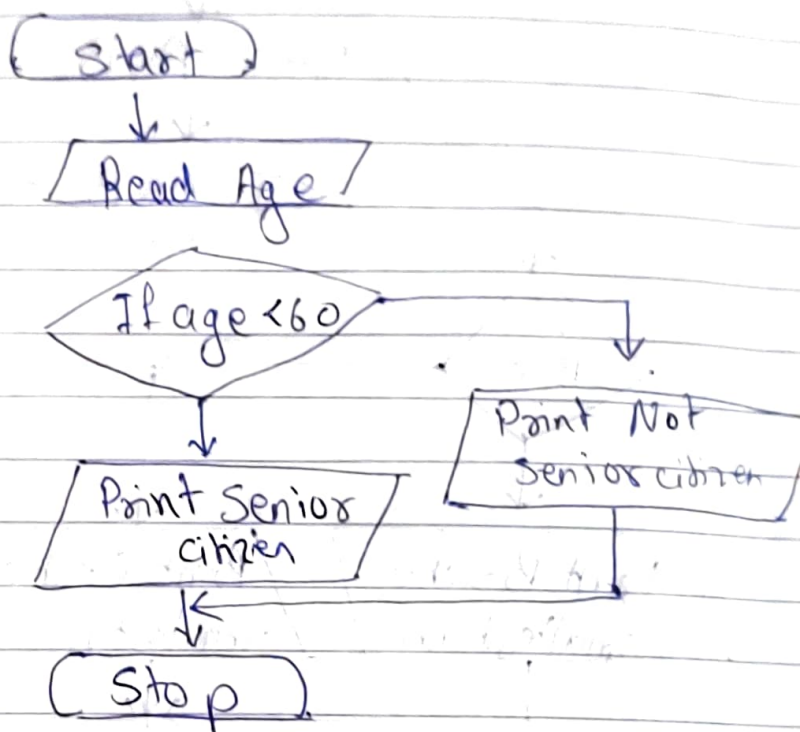 Start
Read Age
If age <60
Print Not
Senior citizen
Print Senior
citizen
Stop